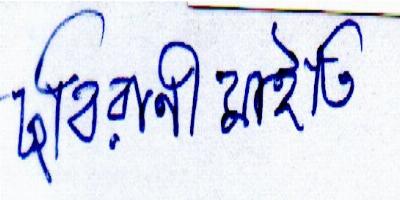 ছবিরানী মাইতি